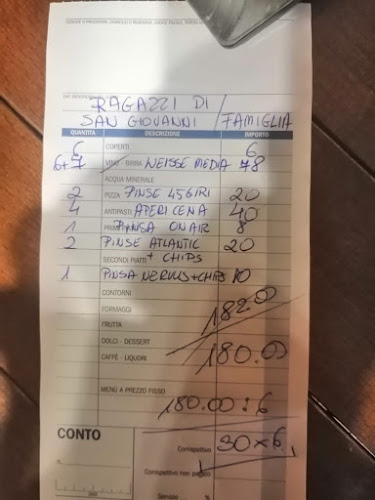 RAGAZZI DI
SAN GIOVANNI FAMIGLIA
QUANTITÀ DESCRIZIONE IMPORTO
6 COPERTI 6
6+7 VINO - BIRRA WEISSE MEDIA 78
ACQUA MINERALE
2 PIZZA PINSE 45GIRI 20
4 ANTIPASTI APERICENA 40
1 PRIMI PINSA ON AIR 8
2 PINSE ATLANTIC 20
SECONDI PIATTI + CHIPS
1 PINSA NERVUS+CHIPS 10
CONTORNI
FORMAGGI 182.00
FRUTTA
DOLCI - DESSERT
CAFFÈ - LIQUORI 180.00
MENÙ A PREZZO FISSO
180.00:6
CONTO 30x6
Corrispettivo
Corrispettivo non pagato
Servizio